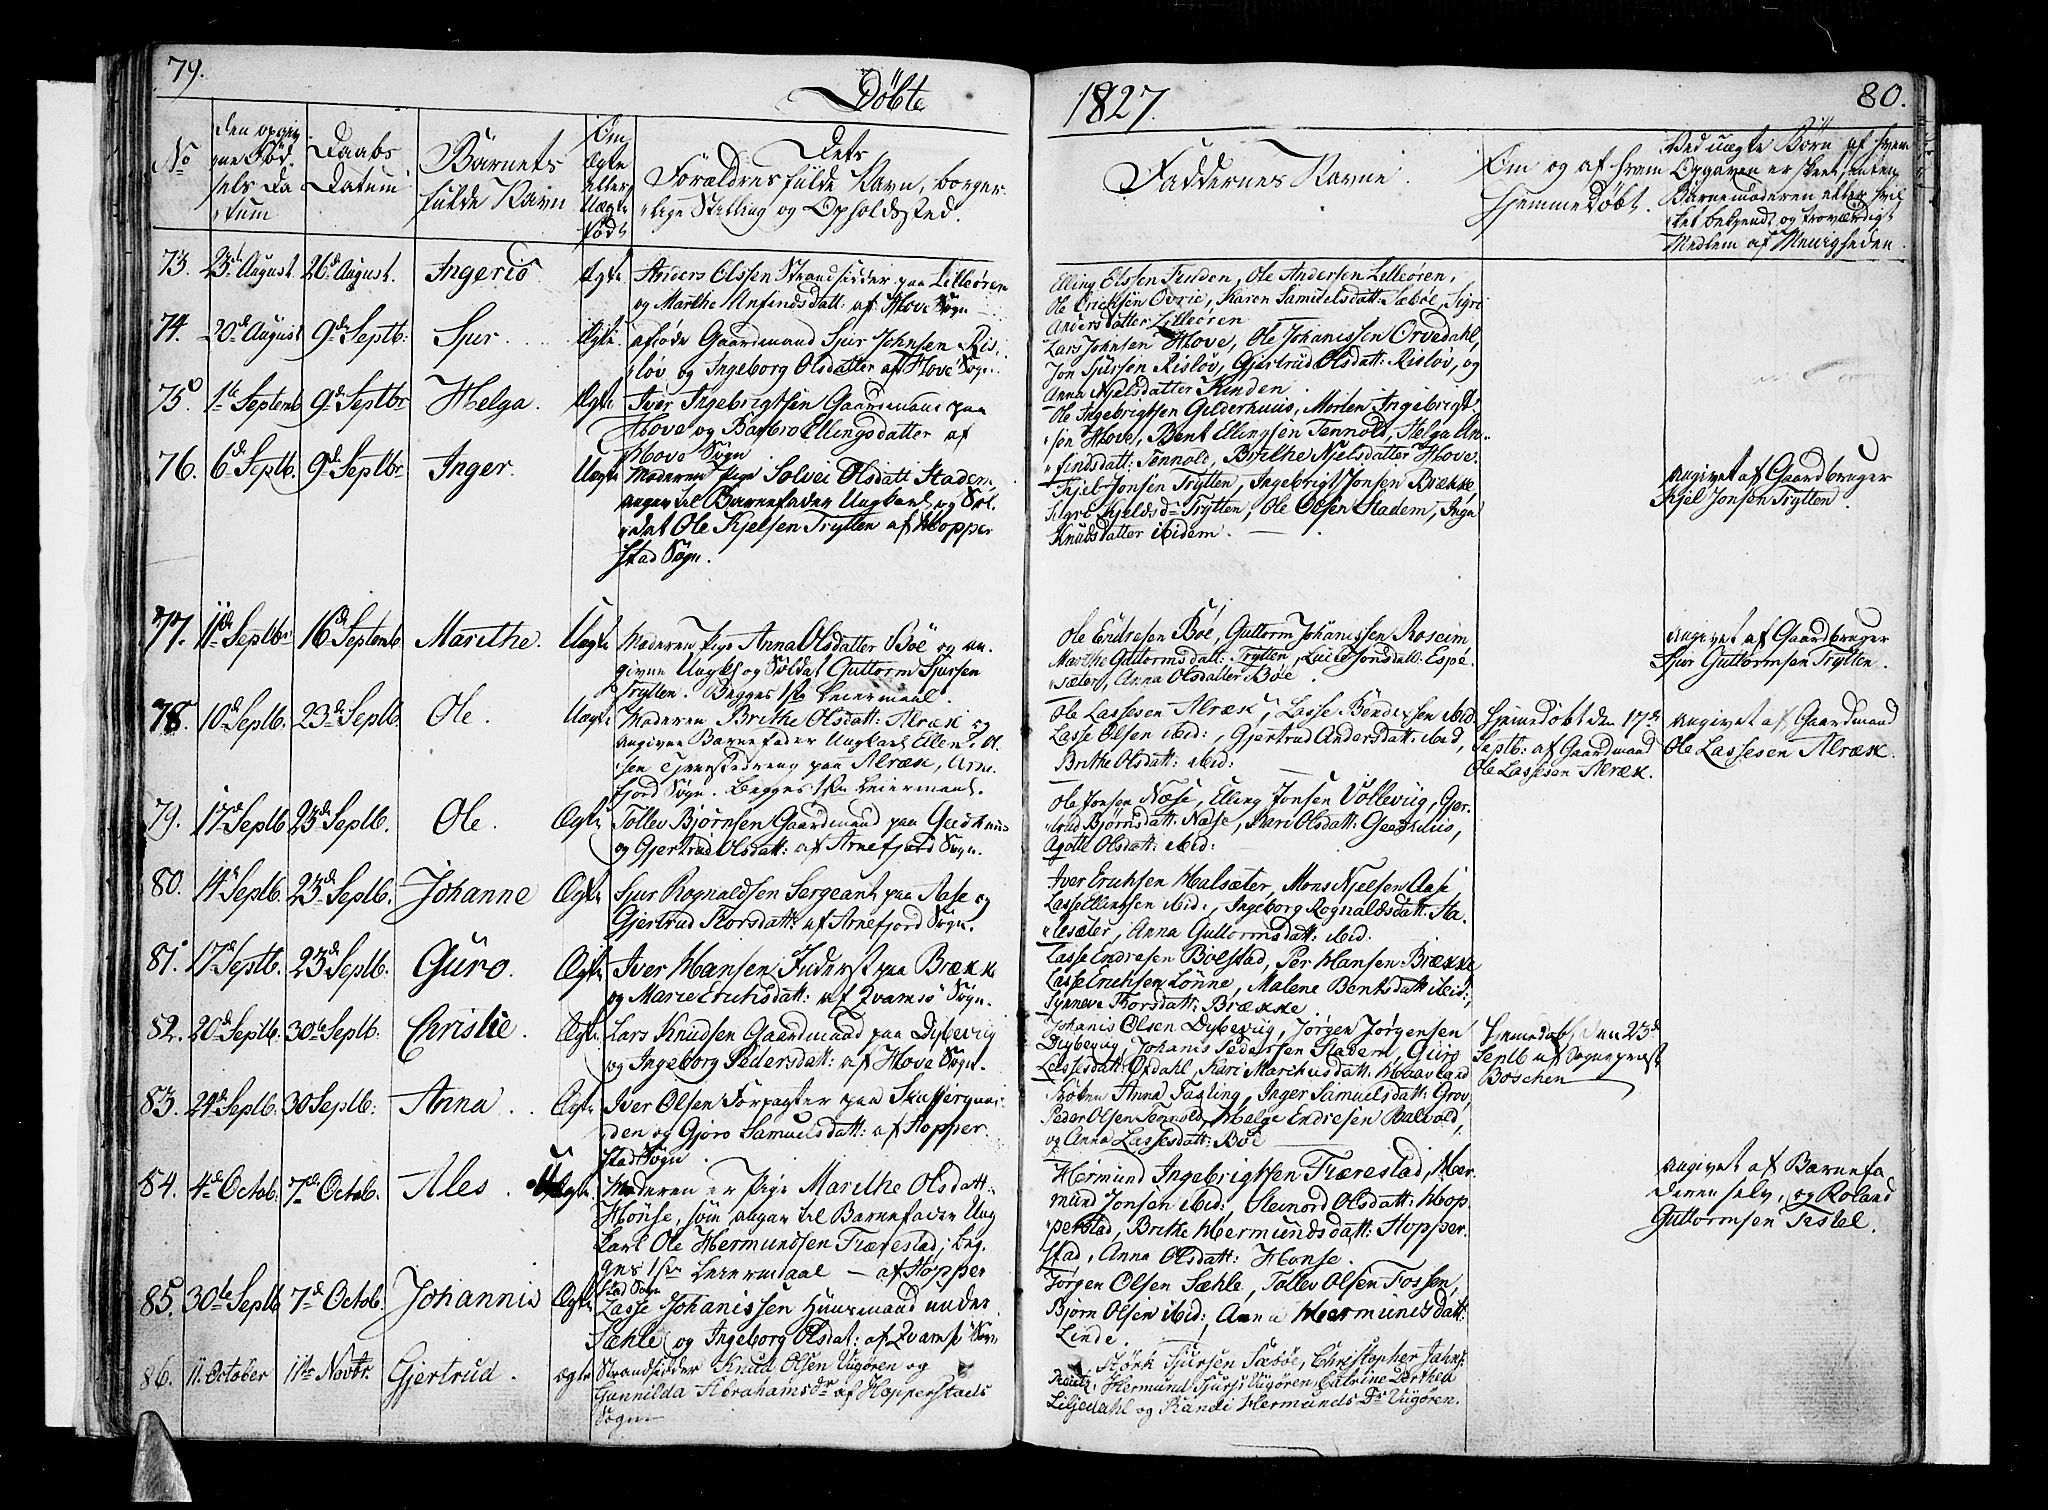 79.
Döbte
1827.
80.
No
Den opgiv
ne Föd
sels Da
tum
Daabs
Datum
Barnets
fulde Navn
Om
Ægte
eller
Uægte
Född
Dets
Forældres fulde Navn, borger-
lige Stilling og Opholdssted.
Faddernes Navne.
Om og af hvem
hjemmedöbt.
Ved uægte Börn af hvem
Opgaven er skeet, enten
Barnemoderen eller hvil
ket bekjendt og troværdigt
Medlem af Menigheden.
73. 23de August. 26de August. Ingerid Ægte
Anders Olssen Strandsidder paa Lilleören
og Marthe Unfindsdatt: af Hove Sogn
Elling Olssen Finden, Ole Andersen Lilleören,
Ole Ericksen Ovrie, Karen Samuelsdatt: Sæböe, Sigri
Andersdatter Lilleören
74. 20de August 9de Septb: Sjur. Ægte.
afdöde Gaardmand Sjur Johnsen Ris-
löv og Ingeborg Olsdatter af Hove Sogn
Lars Johnsen Hove, Ole Johanissen Orvedahl,
Jon Sjursen Rislöv, Gjertrud Olsdatt: Rislöv, og
Anna Njelsdatter Kinden.
75. 1ste Septemb 9de Septbr Helga. Ægte
Iver Ingebrigtsen Gaardmand paa
Hove og Barbro Ellingsdatter af
Hove Sogn
Ole Ingebrigtsen Gilderhuus, Morten Ingebrigt
sen Hove, Bent Ellingsen Tennold, Helga An-
findsdatt: Tennold, Brithe Njelsdatter Hove.
76. 6de Septb. 9de Septbr Inger. Uægte
Moderen Pige Solvei Olsdatt Stadem,
angav til Barnefader Ungkarl og Sol
dat Ole Kjelsen Trytten af Hopper
stad Sogn.
Kjel Jonsen Trytten, Ingebrigt Jonsen Brække
Sigri Kjelsd: Trytten, Ole Olsen Stadem, Inga
Knudsdatter ibidem.
Angivet af Gaardbruger
Kjel Jonsen Trytten.
77. 11de Septbr 16de Septemb Marithe. Uægte
Moderen Pige Anna Olsdatter Böe og an
givne Ungkl og Soldat Guttorm Sjursen
Trytten. Begges 1ste Leiermaal.
Ole Endresen Böe, Guttorm Johanissen Roseim
Marthe Guttormsdatt: Trytten, Lucie Jonsdatt: Espe
sæter, Anna Olsdatter Böe
Angivet af Gaardbruger
Sjur Guttormsen Trytten.
78. 10de Septb. 23de Septb. Ole. Uægte
Moderen Brithe Olsdatt: Alræk og
angivne Barnefader Ungkarl Ellend Ol
sen tjenestedreng paa Alræk, Arne
fjord Sogn. Begges 1ste Leiermaal.
Ole Lassesen Alræk, Lasse Bendixsen ibid
Lasse Olsen ibid:, Gjertrud Andersdatt: ibid,
Brithe Olsdatt: ibid:
Hjemedöbt den 17de
Septb: af Gaardmand
Ole Lassesen Alræk.
Angivet af Gaardmand
Ole Lassesen Alræk.
79. 17de Septb 23de Septb. Ole. Ægte
Tollev Björnsen Gaardmand paa
og Gjertrud Olsdatt: af Arnefjord Sogn.
Ole Jonsen Næse, Elling Jonsen Vollevig, Gjer
trud Björnsdatt: Næse, Kari Olsdatt:
Agate Olsdatt: ibid:
80. 14de Septb. 23de Septb. Johanne Ægte
Sjur Rognaldsen Sergeant paa Aase og
Gjertrud Thorsdatt: af Arnefjord Sogn.
Iver Erichsen Halsæter, Mons Njelsen Aase,
Lasse Ellingsen ibid:, Ingeborg Rognaldsdatt: Ha
lesæter, Anna Guttormsdatt: ibid.
81. 17de Septb. 23de Septb. Guro. Ægte
Iver Hansen Inderst paa Brække
og Marie Erichsdatt: af Qvamsö Sogn.
Lasse Endresen Bolstad, Per Hansen Brække
Lasse Erichsen Lönne, Malene Bentsdatt ibid:,
Synneva Thorsdatt: Brække
82. 20de Septb. 30te Septb. Christie. Ægte
Lars Knudsen Gaardmand paa Dybevig
og Ingeborg Pedersdatt: af Hove Sogn.
Johanis Olsen Dybevig, Jörgen Jörgensen
Dybevig, Johanis Pedersen Stadem, Guro
Lassesdatt: Ofdahl, Kari Marthusdatt: Haaveland
Hjemmedöbt den 23de
Septb af Sognepræst
Böschen
83. 24de Septb. 30 Septb: Anna. Ægte
Iver Olsen Forpagter paa Skaffergaar-
den og Gjoro Samuelsdatt: af Hopper-
stad Sogn.
Fröken Anna Fasting, Inger Samuelsdatt: Grov,
Peder Olsen Tennold, Helge Endresen Valvold,
og Anna Lassesdatt: Böe
84. 4de Octob. 7de Octob. Ales. Uægte
Moderen er Pige Marithe Olsdatt:
Hönse, som angav til Barnefader Ung
karl Ole Hermundsen Færestad; beg-
ges 1ste Leiermaal — af Hopper
stad Sogn
Hermund Ingebrigtsen Færestad, Her
mund Jonsen ibid:, Steinord Olsdatt: Hop
perstad, Brithe Hermundsdatt: Hopper
stad, Anna Olsdatt: Hönse.
Angivet af Barnefa
deren selv, og Roland
Guttormsen Tistel.
85. 30te Septb 7de Octob. Johannis Ægte
Lasse Johanissen Huusmand under
Sæhle og Ingeborg Olsdat: af Qvamsö Sogn
Jörgen Olsen Sæhle, Tollev Olsen Fossen,
Björn Olsen ibid:, Anna Hermundsdatt:
Linde.
86. 11. October 11te Novbr. Gjertrud. ægte
Strandsidder Knud Olsen Vigören og
Gunnilda Abrahamsdr af Hopperstads
Sogn
Störk Sjursen Sæböe, Christopher Jahns
Reutz, Hermund Sjurs: Vigören, Catrine Dorthea
Liljedahl og Randi Hermunds Dr Vigören.